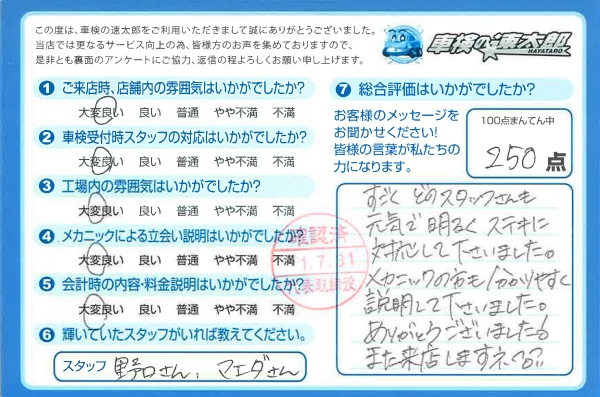 この度は、車検の速太郎をご利用いただきまして誠にありがとうございました。
当店では更なるサービス向上の為、皆様方のお声を集めておりますので、
是非とも裏面のアンケートにご協力、返信の程よろしくお願い申し上げます。
車検の速太郎
HAYATARO
1 ご来店時、店舗内の雰囲気はいかがでしたか?
大変良い 良い 普通 やや不満 不満
2 車検受付時スタッフの対応はいかがでしたか?
大変良い 良い 普通 やや不満 不満
3 工場内の雰囲気はいかがでしたか?
大変良い 良い 普通 やや不満 不満
4 メカニックによる立会い説明はいかがでしたか?
大変良い 良い 普通 やや不満 不満
5 会計時の内容・料金説明はいかがでしたか?
大変良い 良い 普通 やや不満 不満
6 輝いていたスタッフがいれば教えてください。
スタッフ 野口さん、マエダさん
確認済
1.7.31
代表取締役
7 総合評価はいかがでしたか?
お客様のメッセージを
お聞かせください!
皆様の言葉が私たちの
力になります。
100点まんてん中
250点
すごく どのスタッフさんも
元気で 明るく ステキに
対応して下さいました。
メカニックの方も分かりやすく
説明して下さいました。
ありがとうございました。
また来店しますネ